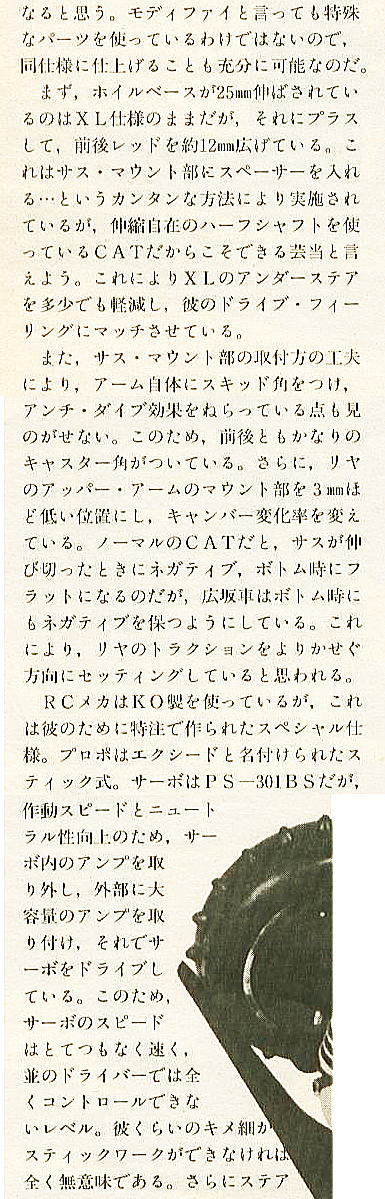 なると思う。モディファイと言っても特殊
なパーツを使っているわけではないので，
同仕様に仕上げることも充分に可能なのだ。
　まず，ホイルベースが25㎜伸ばされてい
るのはＸＬ仕様のままだが，それにプラス
して，前後レッドを約12㎜広げている。こ
れはサス・マウント部にスペーサーを入れ
る…というカンタンな方法により実施され
ているが，伸縮自在のハーフシャフトを使
っているＣＡＴだからこそできる芸当と言
えよう。これによりＸＬのアンダーステア
を多少でも軽減し，彼のドライブ・フィー
リングにマッチさせている。
　また，サス・マウント部の取付方の工夫
により，アーム自体にスキッド角をつけ，
アンチ・ダイブ効果をねらっている点も見
のがせない。このため，前後ともかなりの
キャスター角がついている。さらに，リヤ
のアッパー・アームのマウント部を３㎜ほ
ど低い位置にし，キャンバー変化率を変え
ている。ノーマルのＣＡＴだと，サスが伸
び切ったときにネガティブ，ボトム時にフ
ラットになるのだが，広坂車はボトム時に
もネガティブを保つようにしている。これ
により，リヤのトラクションをよりかせぐ
方向にセッティングしていると思われる。
　ＲＣメカはＫＯ製を使っているが，これ
は彼のために特注で作られたスペシャル仕
様。プロポはエクシードと名付けられたス
ティック式。サーボはＰＳ―301ＢＳだが，
作動スピードとニュート
ラル性向上のため，サー
ボ内のアンプを取
り外し，外部に大
容量のアンプを取
り付け，それでサ
ーボをドライブし
ている。このため，
サーボのスピード
はとてつもなく速く，
並のドライバーでは全
くコントロールできな
いレベル。彼くらいのキメ細か
スティックワークができなければ
全く無意味である。さらにステア